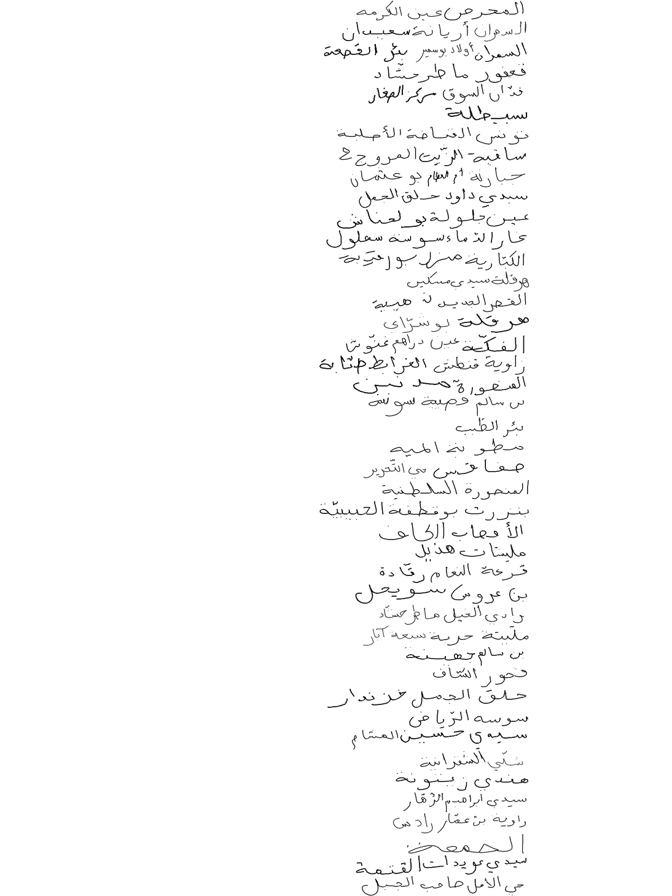 المعرض عين الكرمه
السمران أريانة سعيدان
السمران أولاد بوسمير بئر القصعة
فعفور ماطر حشّاد
فدّان السوق مركز الصغار
سبيطلة
تونس القناصة الأجلية
ساقية الزّيت المروج ج
جبارنة أم العظام بو عثمان
سيدي داود حلق الجمل
عين جلولة بو لعناش
غار الدماء سوسة سهلول
الكتارية منزل بورقيبة
هرقلة سيدي مسكين
القصر الجديد ذهيبة
هرقلة بوشرّاي
الفكّة عين دراهم غنّوش
زاوية قنطش الغرابط جنّابة
المنصورة مدنين
بن سالم قصيبة سوسة
بئر الطّيب
مطوية المية
صفاقس حي التّحرير
المنصورة السلطنية
بنزرت بوقطفة الحبيبيّة
الأقصاب الكاف
مليتات هذيل
قرعة النعام رقّادة
بن عروس سويحل
وادي الغيل ماطر حشّاد
ملّيتة حربة سبعة آبار
بن سالم جهينة
نحور الشّاف
حلق الجمل خزندار
سوسه الرّياض
سيدي حسين الهشّام
شلّي الشعرانية
هندي زيتونة
سيدي ابراهيم الزّهّار
زاوية بن عمّار رادس
الجمعة
سيدي عويدات القتمة
حي الامل صاحب الجبل